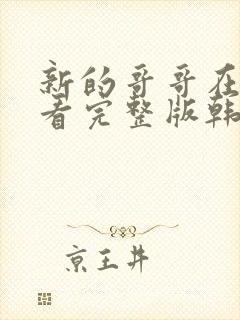 新的哥哥在
看完整版韩
京王井